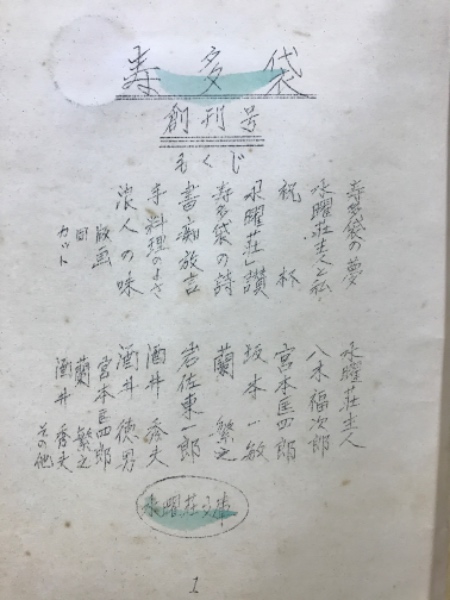 寿多袋
創刊号
もくじ
寿多袋の夢 水曜荘主人
水曜荘主人と私 八木福次郎
祝杯 宮本匡四郎
「水曜荘」讃 坂本一敏
寿多袋の詩 蘭繁之
書痴放言 岩佐東一郎
手料理のよさ 酒井秀夫
浪人の味 酒井徳男
版画 宮本匡四郎
〃 蘭繁之
カット 酒井秀夫
その他
水曜荘文庫
1